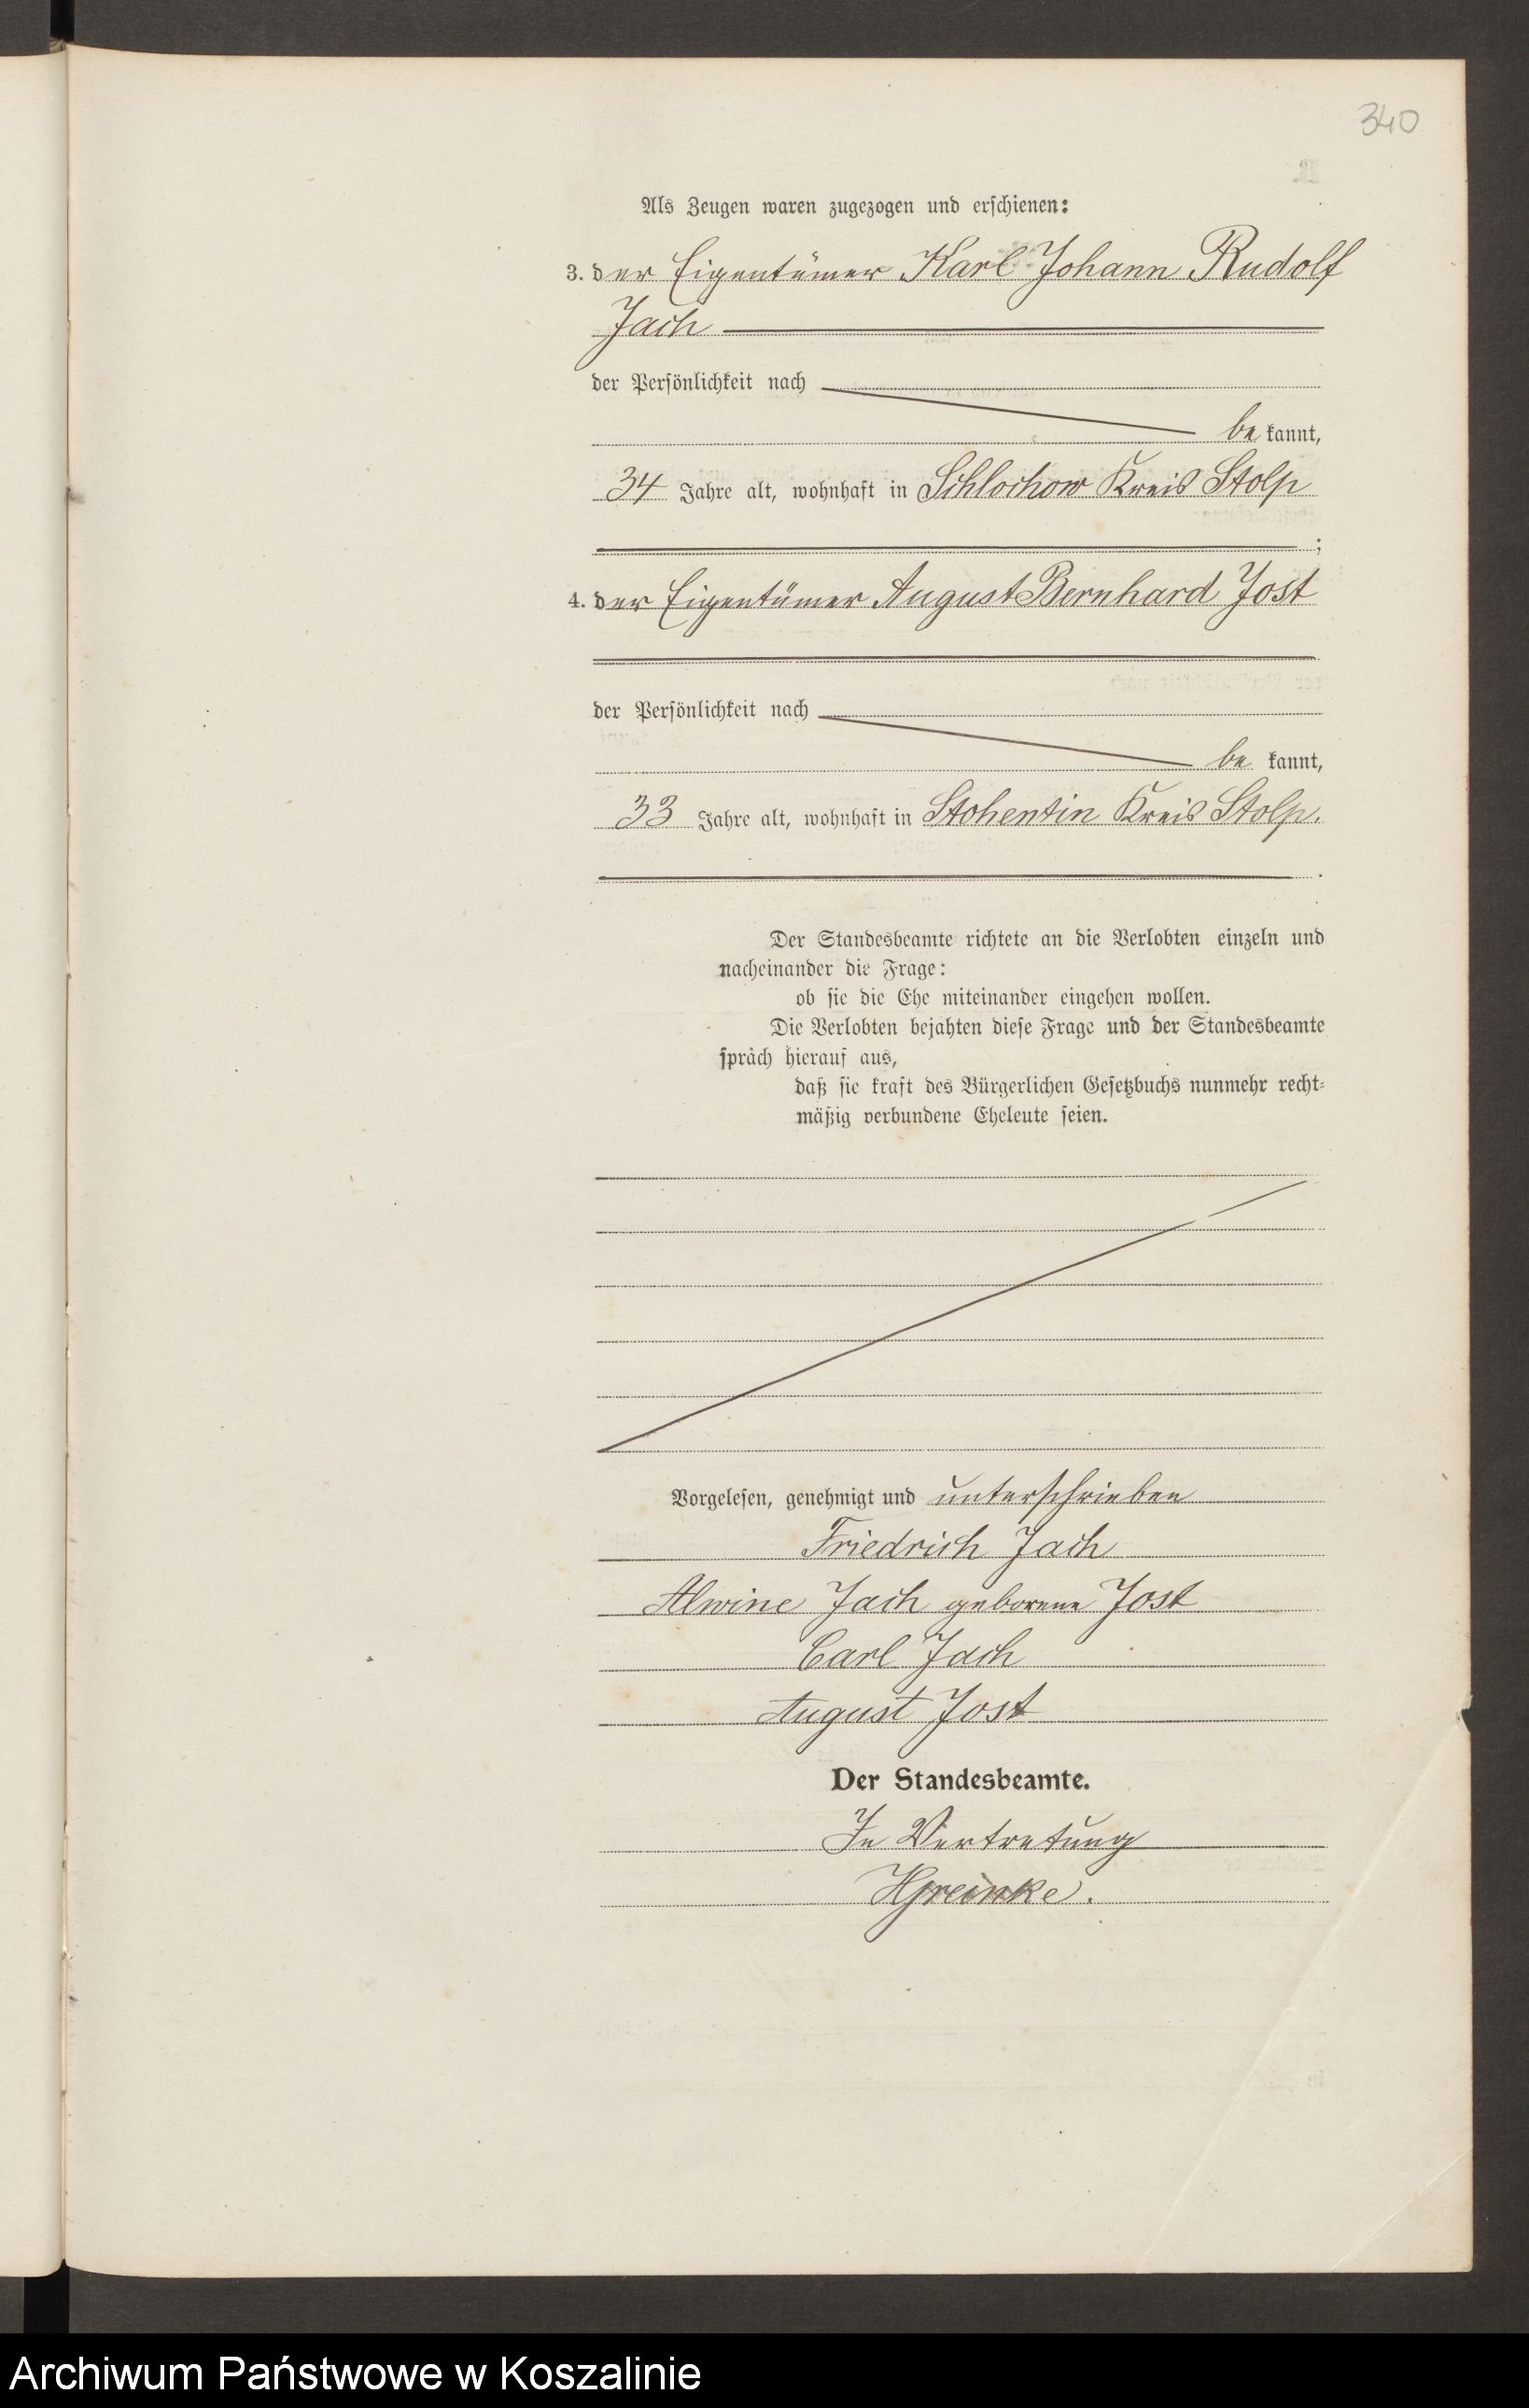 340
Als Zeugen waren zugezogen und erschienen:
3. der Eigentümer Karl Johann Rudolf
Jach
der Persönlichkeit nach
be kannt,
34 Jahre alt, wohnhaft in Schlochow Kreis Stolp
;
4. der Eigentümer August Bernhard Jost
der Persönlichkeit nach
be kannt,
33 Jahre alt, wohnhaft in Stohentin Kreis Stolp.
.
Der Standesbeamte richtete an die Verlobten einzeln und
nacheinander die Frage:
ob sie die Ehe miteinander eingehen wollen.
Die Verlobten bejahten diese Frage und der Standesbeamte
sprach hierauf aus,
daß sie kraft des Bürgerlichen Gesetzbuchs nunmehr recht-
mäßig verbundene Eheleute seien.
Vorgelesen, genehmigt und unterschrieben
Friedrich Jach
Alwine Jach geborene Jost
Carl Jach
August Jost
Der Standesbeamte.
In Vertretung
Archiwum Państwowe w Koszalinie